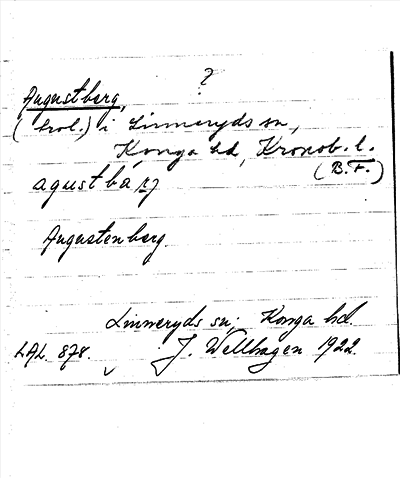 ?
Augustberg,
(krol.) i Linneryds sn,
Konga hd, Kronob. l.
(B.F.)
agustbarj
Augustenberg.
Linneryds sn; Konga hd.
LAL. 878. J. Wellhagen 1922.